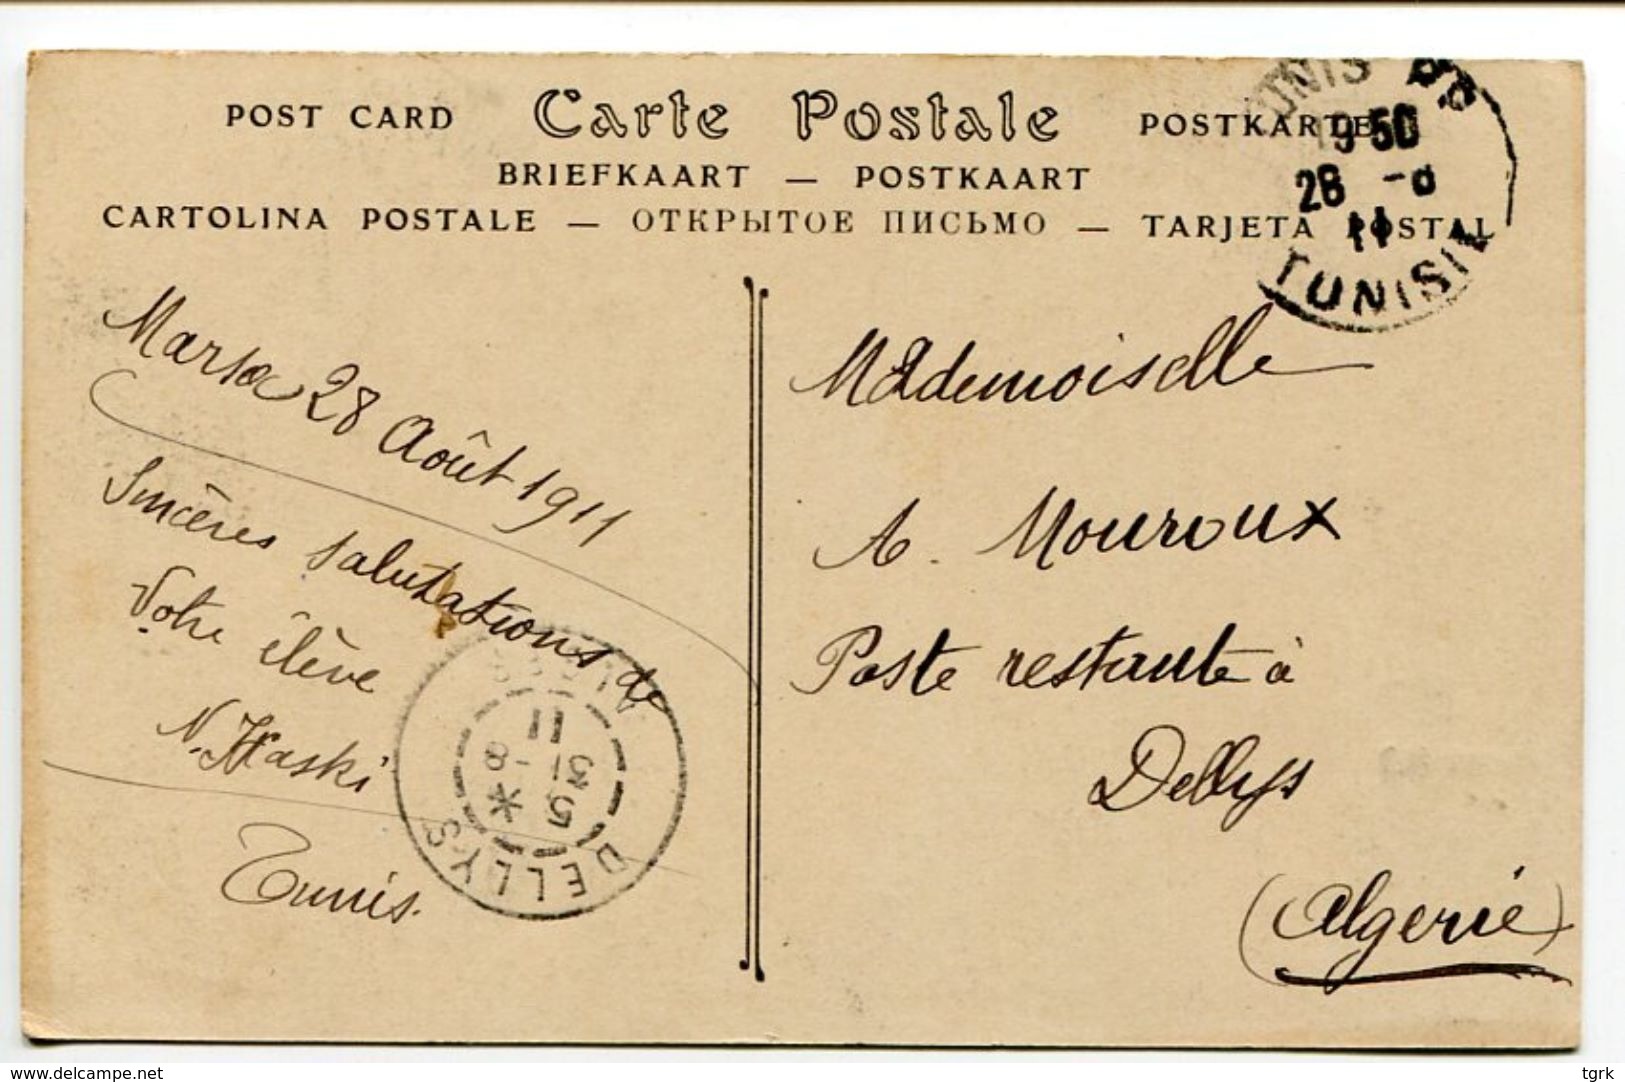 POST CARD Carte Postale POSTKARTE
BRIEFKAART — POSTKAART
CARTOLINA POSTALE — ОТКРЫТОЕ ПИСЬМО — TARJETA POSTAL
TUNIS
19 50
28 -8
11
TUNISIE
Marsa 28 Août 1911
Sincères salutations de
Votre élève
N. Haski
Tunis.
DELLYS
Mademoiselle
A. Mouroux
Poste restante à
Dellys
(Algérie)
www.delcampe.net
tgrk